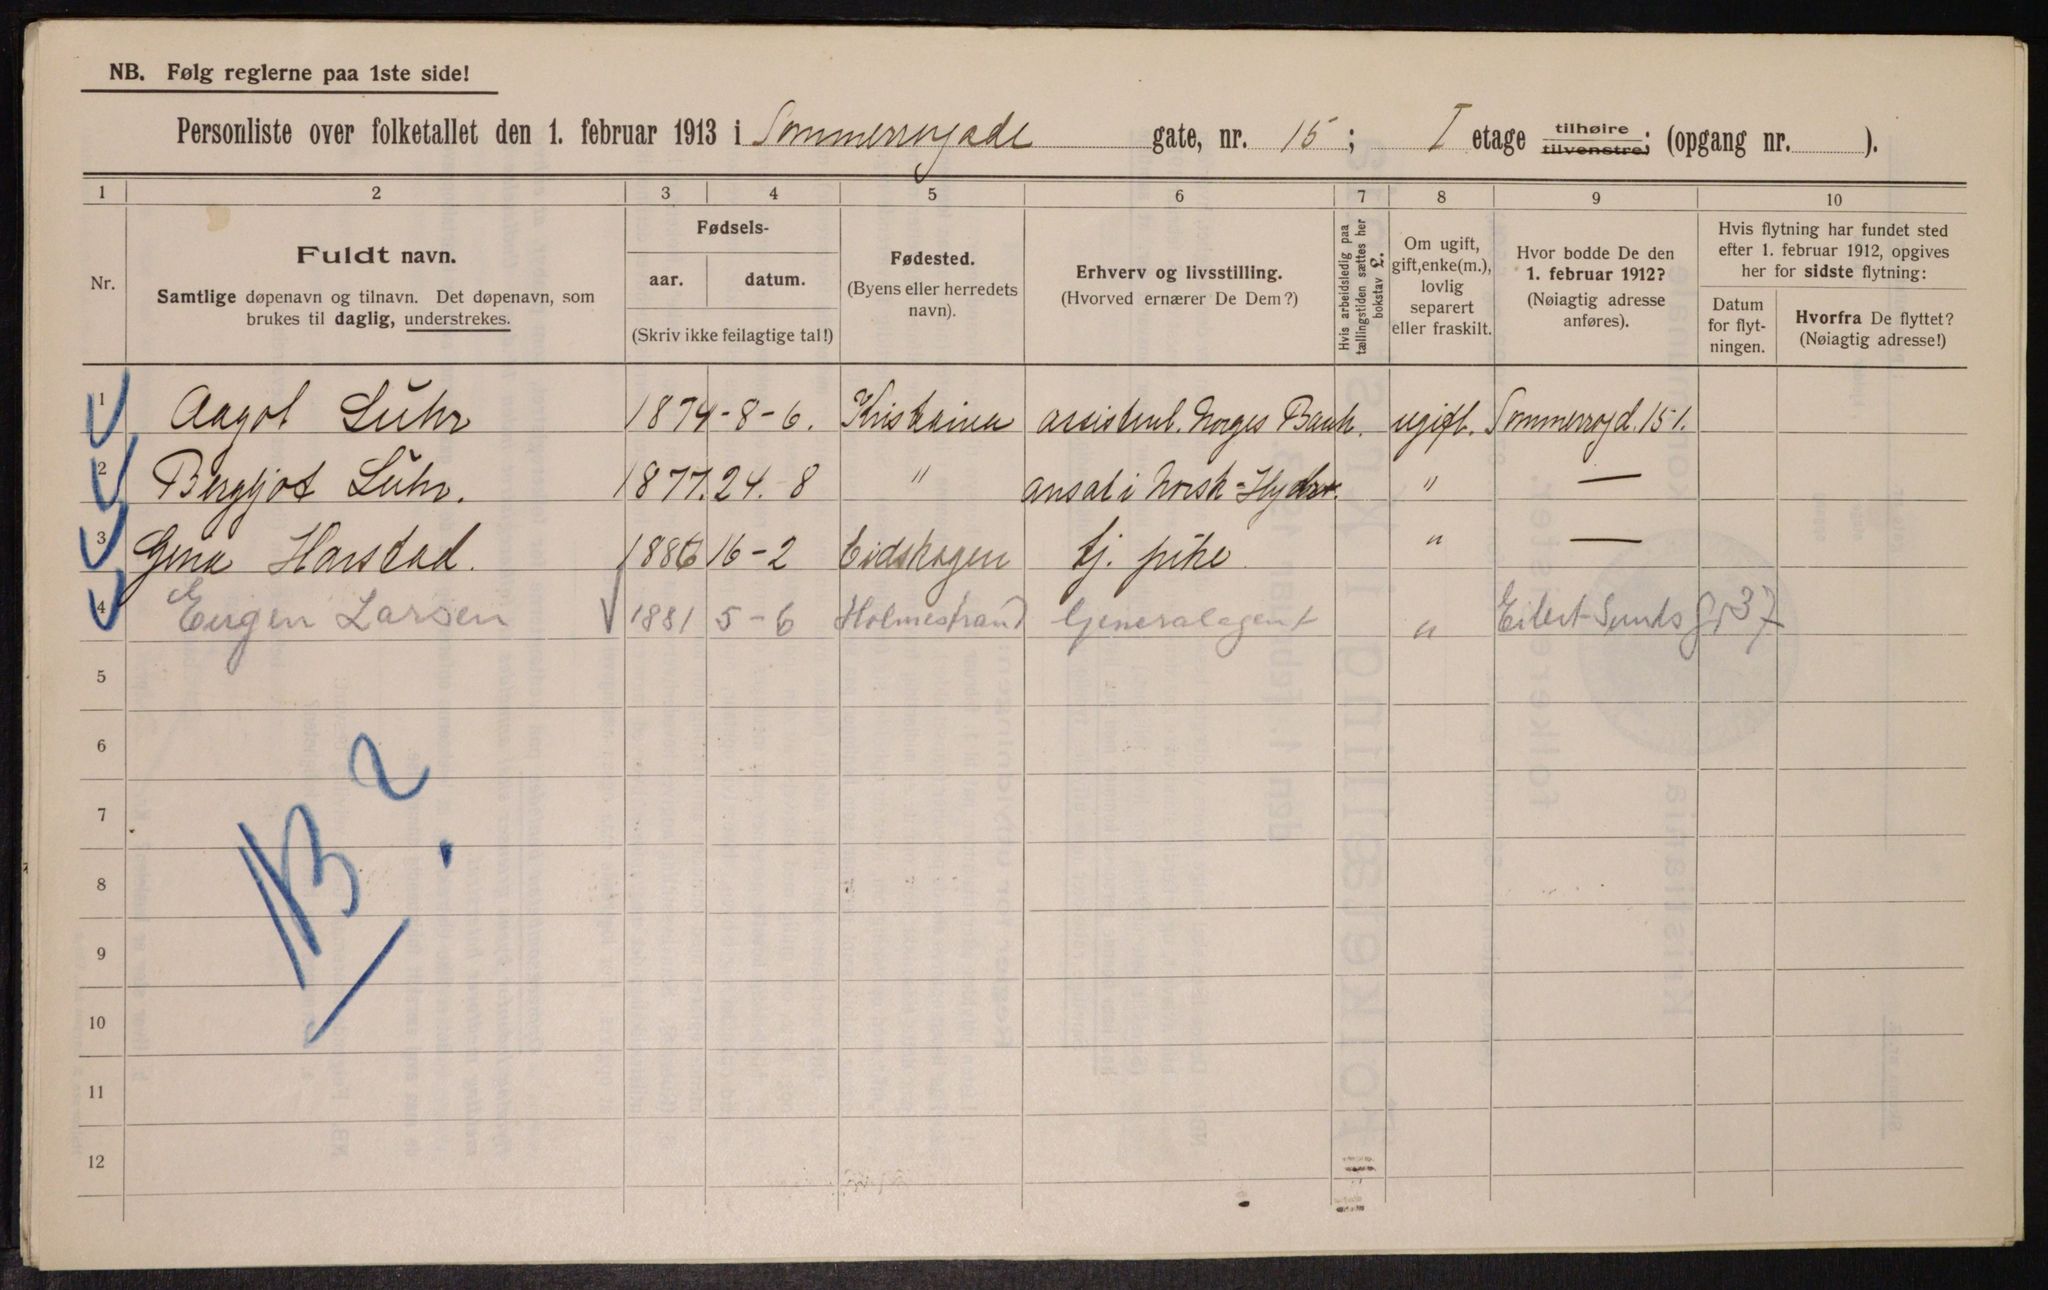 NB. Følg reglerne paa 1ste side!
Personliste over folketallet den 1. februar 1913 i Sommerrogade gate, nr. 15; I etage tilhøire tilvenstre; (opgang nr. ).
1 2 3 4 5 6 7 8 9 10
Nr.
Fuldt navn.
Samtlige døpenavn og tilnavn. Det døpenavn, som
brukes til daglig, understrekes.
Fødsels-
aar. datum.
(Skriv ikke feilagtige tal!)
Fødested.
(Byens eller herredets
navn).
Erhverv og livsstilling.
(Hvorved ernærer De Dem?)
Hvis arbeidsledig paa
tællingstiden sættes her
bokstav L.
Om ugift,
gift, enke(m.),
lovlig
separert
eller fraskilt.
Hvor bodde De den
1. februar 1912?
(Nøiagtig adresse
anføres).
Hvis flytning har fundet sted
efter 1. februar 1912, opgives
her for sidste flytning:
Datum
for flyt-
ningen.
Hvorfra De flyttet?
(Nøiagtig adresse!)
1 Aagot Lühr 1874 -8-6. Kristiania assistent. Norges Bank. ugift. Sommerrogd. 15 I.
2 Bergljot Lühr. 1877. 24. 8 " ansat i Norsk-Hydro. " —
3 Gina Harstad. 1886 16-2 Eidskogen tj. pike " —
4 Eugen Larsen 1881 5-6 Holmestrand Generalagent " Eilert Sunds Gt 37
5
6
7
8
9
10
11
12
NB?